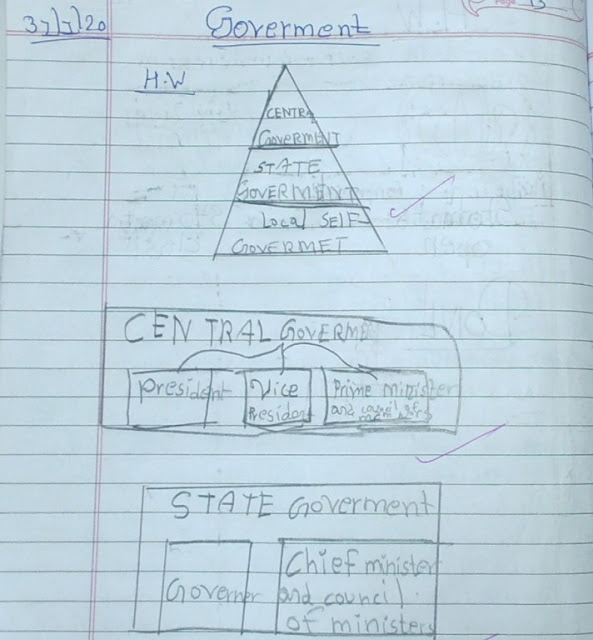 Page 13
31/1/20
Goverment
H.W
CENTRAL
GOVERMENT
STATE
GOVERMENT
Local SELF
GOVERMET
CENTRAL GOVERME
President
Vice
President
Prime minister
and council of
STATE Goverment
Governer
Chief minister
and council
of ministers